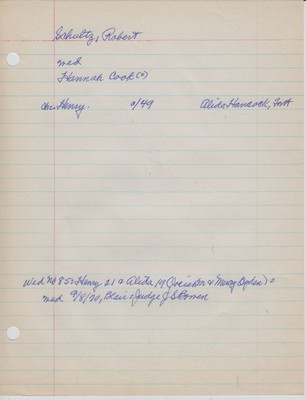 Schultz, Robert
wed
Hannah Cook (?)
ch: Henry. 9/49 Alida Hancock, Fort
Wed No 85: Henry 21 & Alida, 19 ( & Mary Ogden)
wed 9/8/70, Blair, Judge J S Bowen